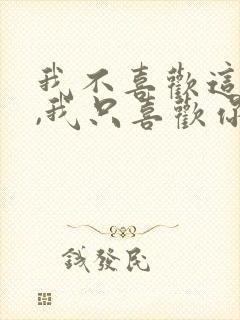 我不喜歡這
,我只喜歡你
錢發民